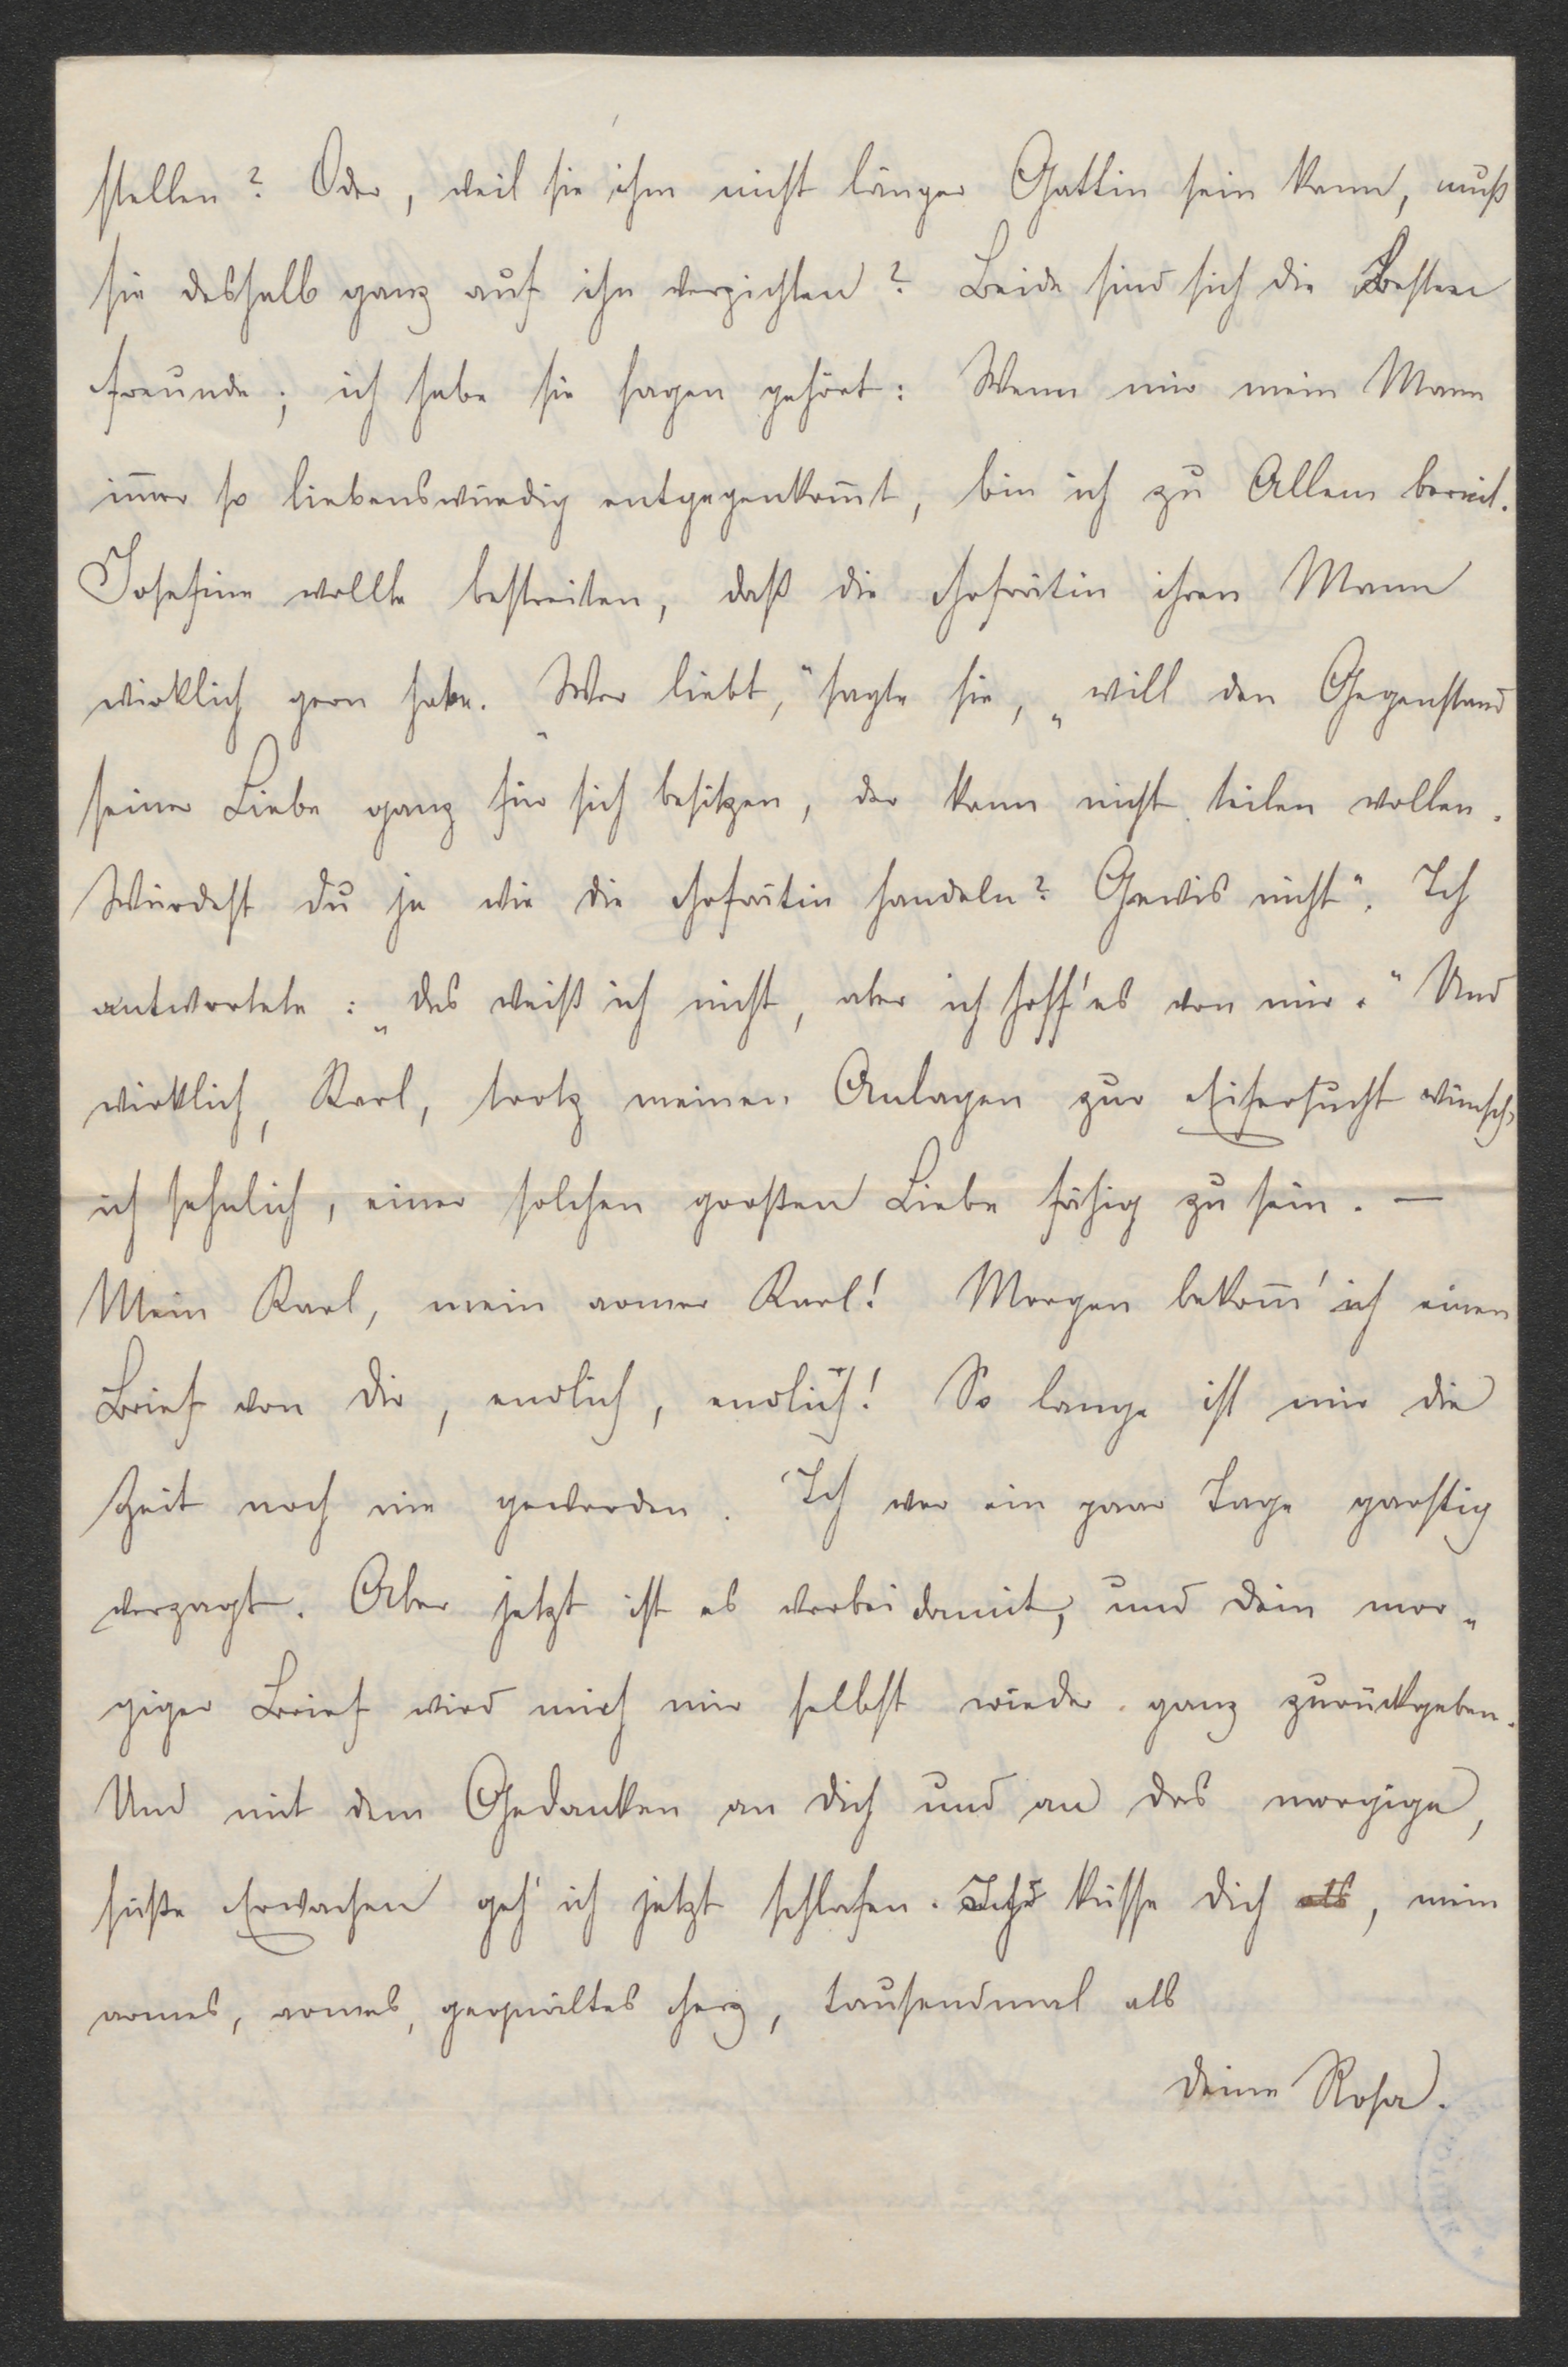 stellen? Oder, weil sie ihm nicht länger Gattin sein kann, muß
sie deshalb ganz auf ihn verzichten? Beide sind sich die Besten
Freunde; ich habe sie sagen gehört: Wenn mir mein Mann
im̅er so liebenswürdig entgegenkom̅t, bin ich zu Allem bereit.
Josefine wollte bestreiten, daß die Hofrätin ihren Mann
wirklich gern habe. „Wer liebt," sagte sie, „will den Gegenstand
seiner Liebe ganz für sich besitzen, der kann nicht teilen wollen.
Würdest du je wie die Hofrätin handeln? Gewis nicht". Ich
antwortete: „das weiß ich nicht, aber ich hoff' es von mir." Und
wirklich, Karl, trotz meinen Anlagen zur Eifersucht wünsch'
ich sehnlich, einer solchen großen Liebe fähig zu sein. —
Mein Karl, mein armer Karl! Morgen bekom̅' ich einen
Brief von dir, endlich, endlich! So lange ist mir die
Zeit noch nie geworden. Ich war ein paar Tage garstig
verzagt. Aber jetzt ist es vorbei damit, und dein mor„
giger Brief wird mich mir selbst wieder ganz zurückgeben.
Und mit dem Gedanken an dich und an das morgige,
süße Erwachen geh' ich jetzt schlafen. Ich küsse dich als, mein
armes, armes, gequältes Herz, tausendmal als
deine Rosa.